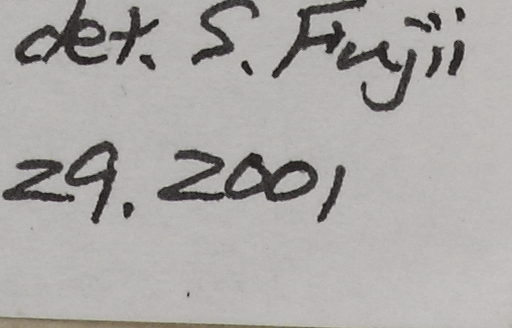 det. S. Fujii
29. 2001